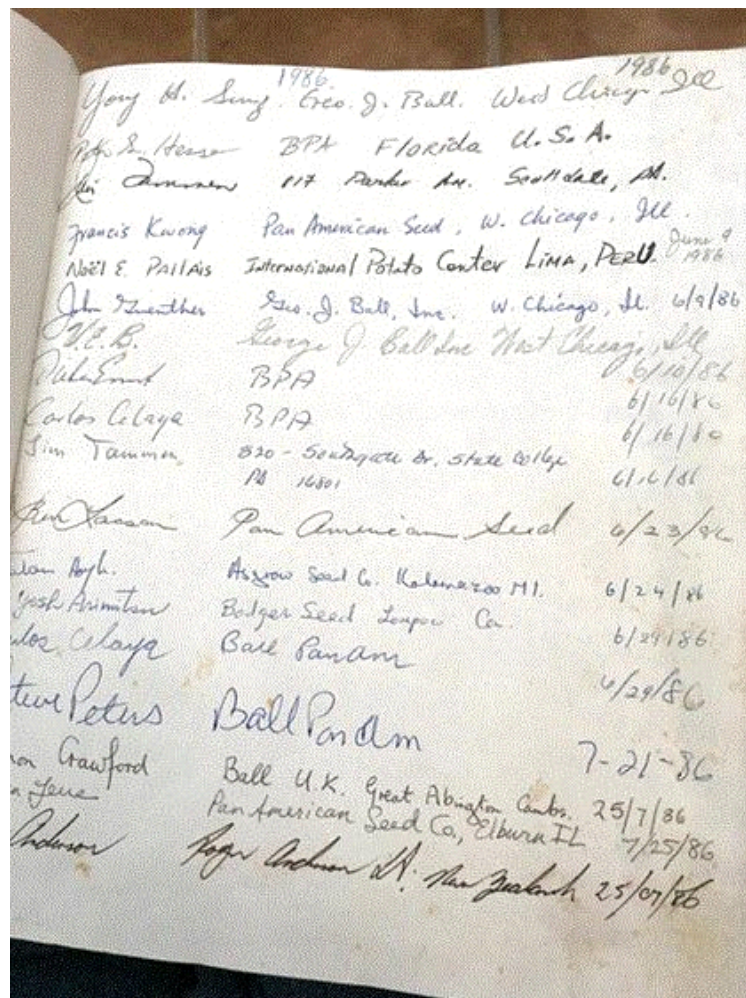 1986 1986
Yong H. Sung. Geo. J. Ball. West Chicago Ill
BPA Florida U.S.A.
117 Parker Av. Scottdale, PA.
Francis Kwong Pan American Seed, W. Chicago, Ill.
Noël E. Pallais International Potato Center Lima, PERU. June 9 1986
John Guenther Geo. J. Ball, Inc. W. Chicago, Il. 6/9/86
V.E.B. George J Ball Inc West Chicago, Ill
6/10/86
BPA 6/16/86
Carlos Celaya BPA 6/16/86
Jim Tammen, 820 - Southgate Dr. State College
PA 16801 6/16/86
Ken Lasson Pan American Seed 6/23/86
Asgrow Seed Co. Kalamazoo MI. 6/24/86
Arimitsu Bodger Seed Lompoc Ca. 6/29/86
los Celaya Ball PanAm 6/29/86
teve Peters Ball PanAm 7-21-86
on Crawford Ball U.K. Great Abington Cambs. 25/7/86
Pan American Seed Co, Elburn IL 7/25/86
Anderson Roger Anderson New Zealand 25/07/86